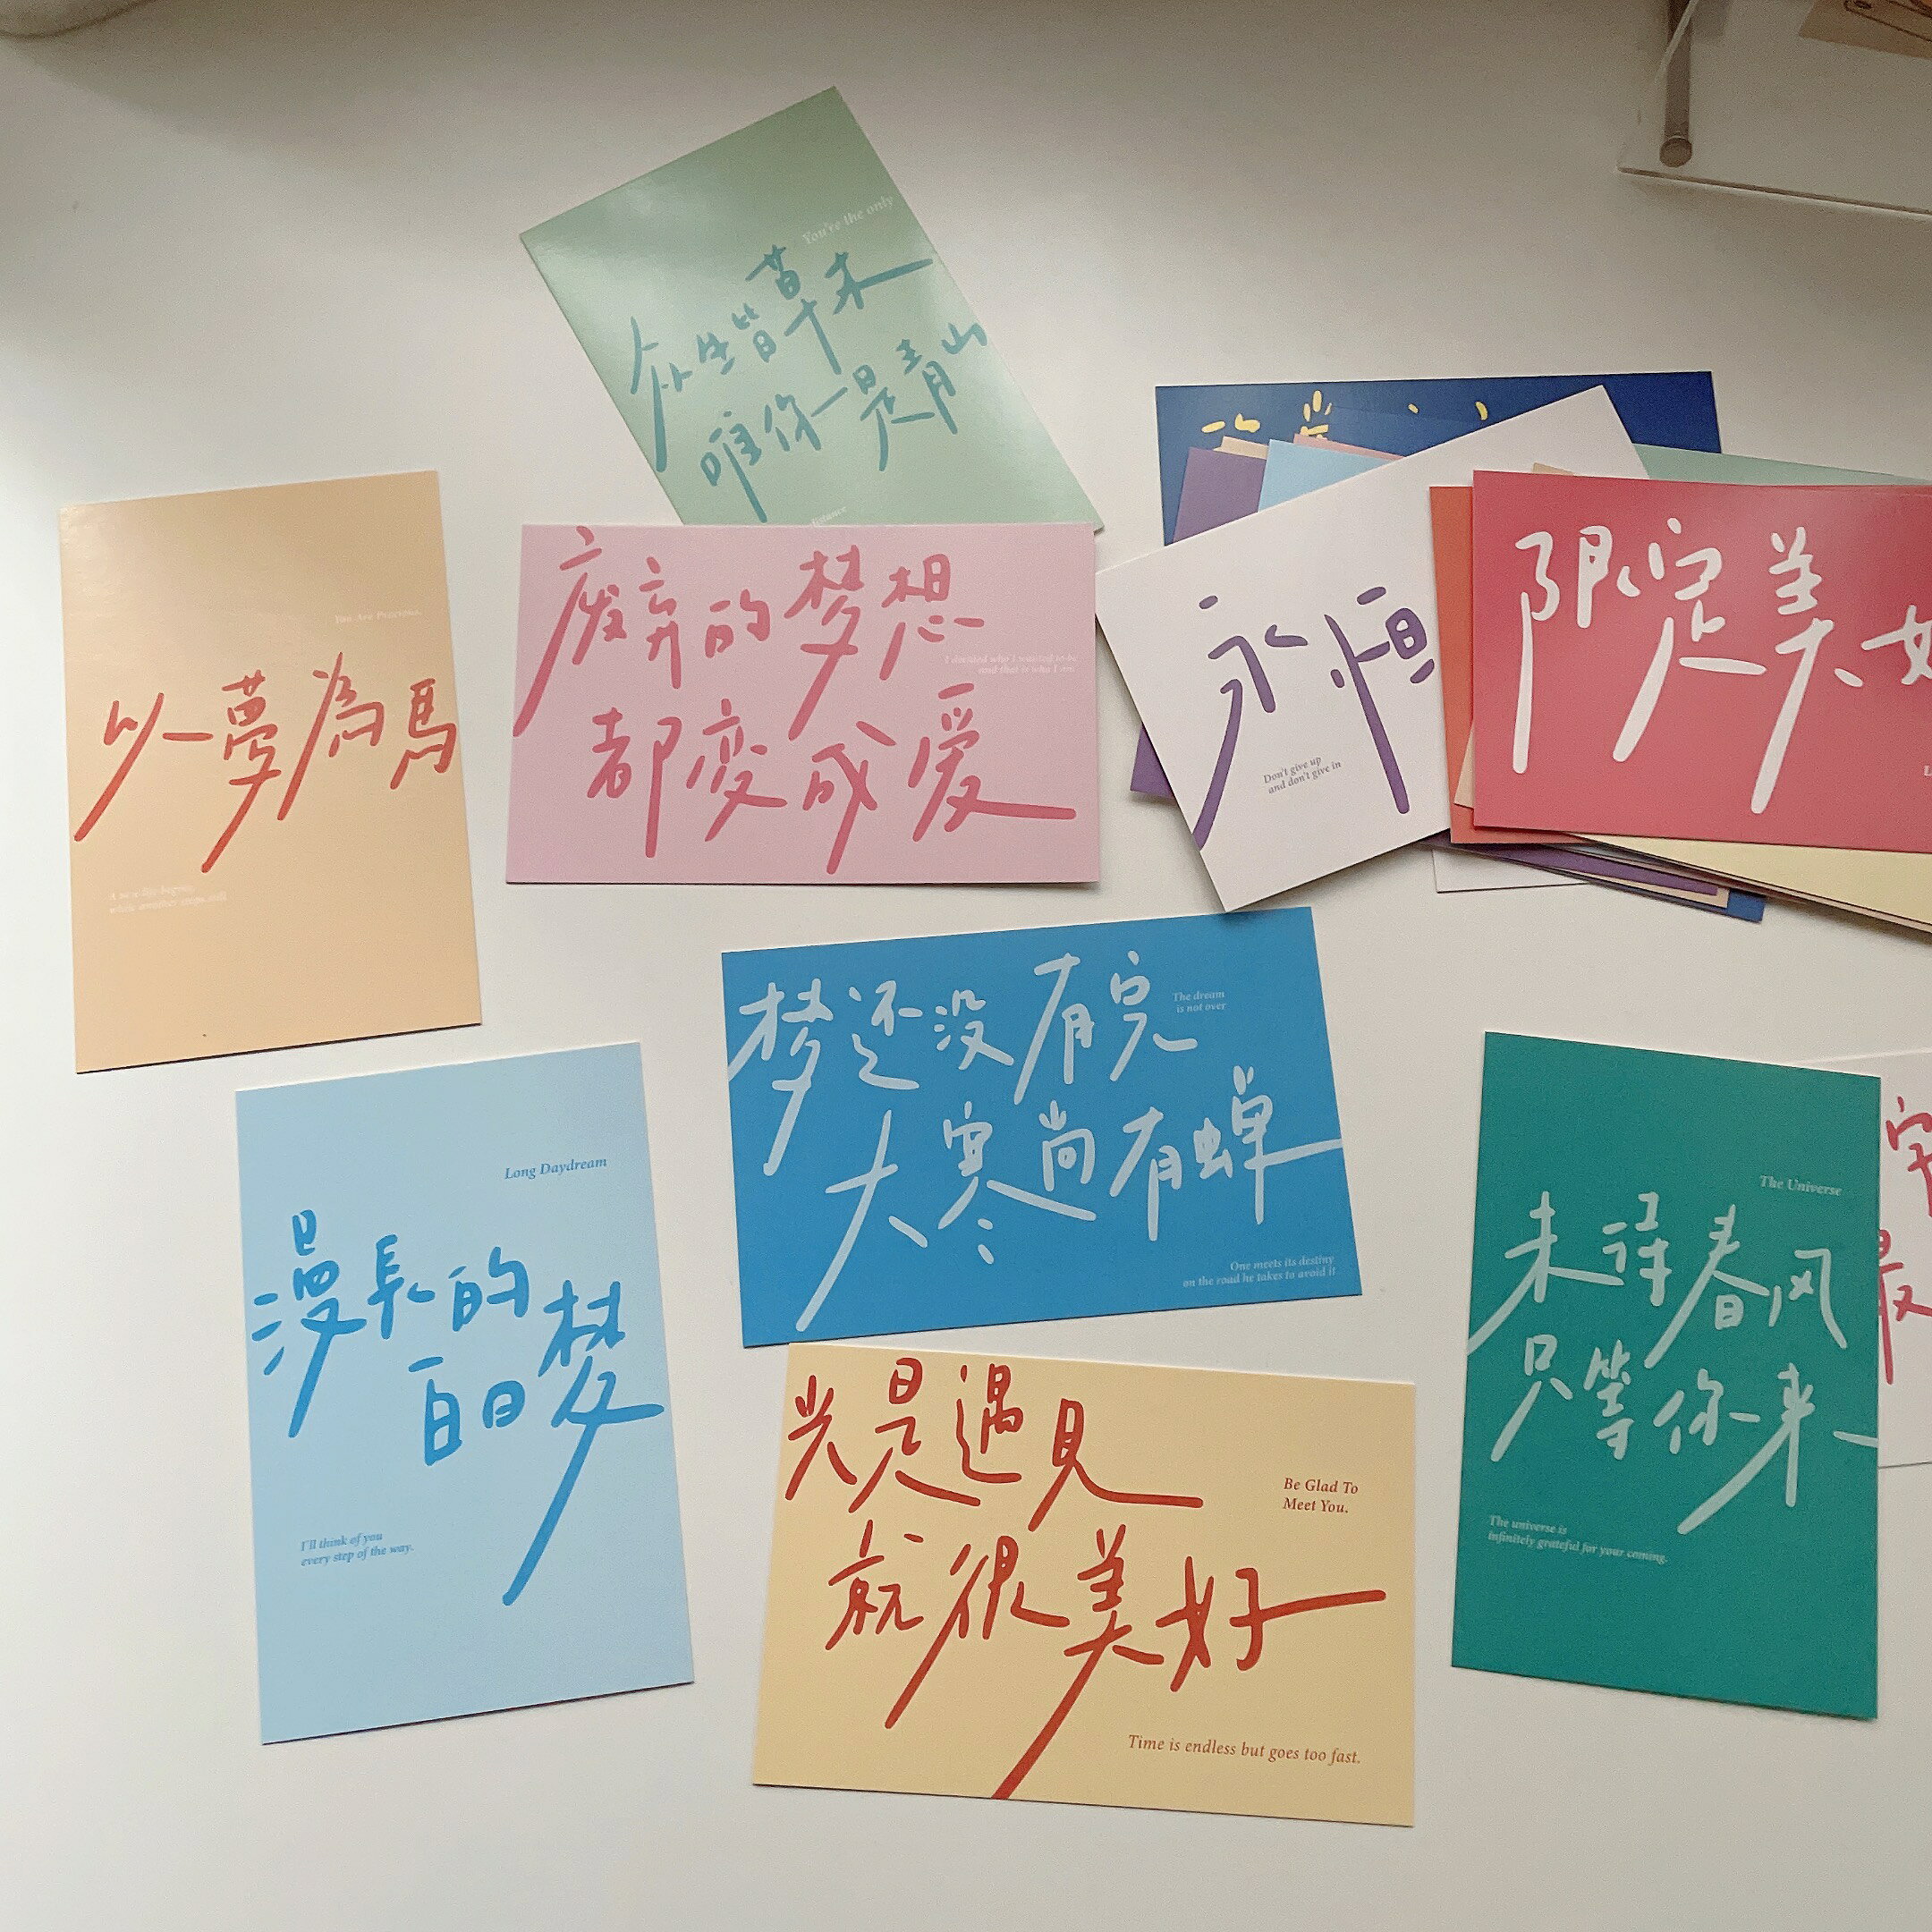 You're the only
众生皆草木
唯你是青山
distance
You Are Precious.
以夢為馬
A new life begins
when another stops still
廢弃的梦想
I decided who I wanted to be
and that is who I am.
都变成爱
永恒
Don't give up
and don't give in
限定美好
梦还没有完
The dream
is not over
大寒尚有蝉
One meets its destiny
on the road he takes to avoid it
Long Daydream
漫長的
白日梦
I'll think of you
every step of the way.
光是遇見
Be Glad To
Meet You.
就很美好
Time is endless but goes too fast.
The Universe
未待春风
只等你来
The universe is
infinitely grateful for your coming.
宇
最